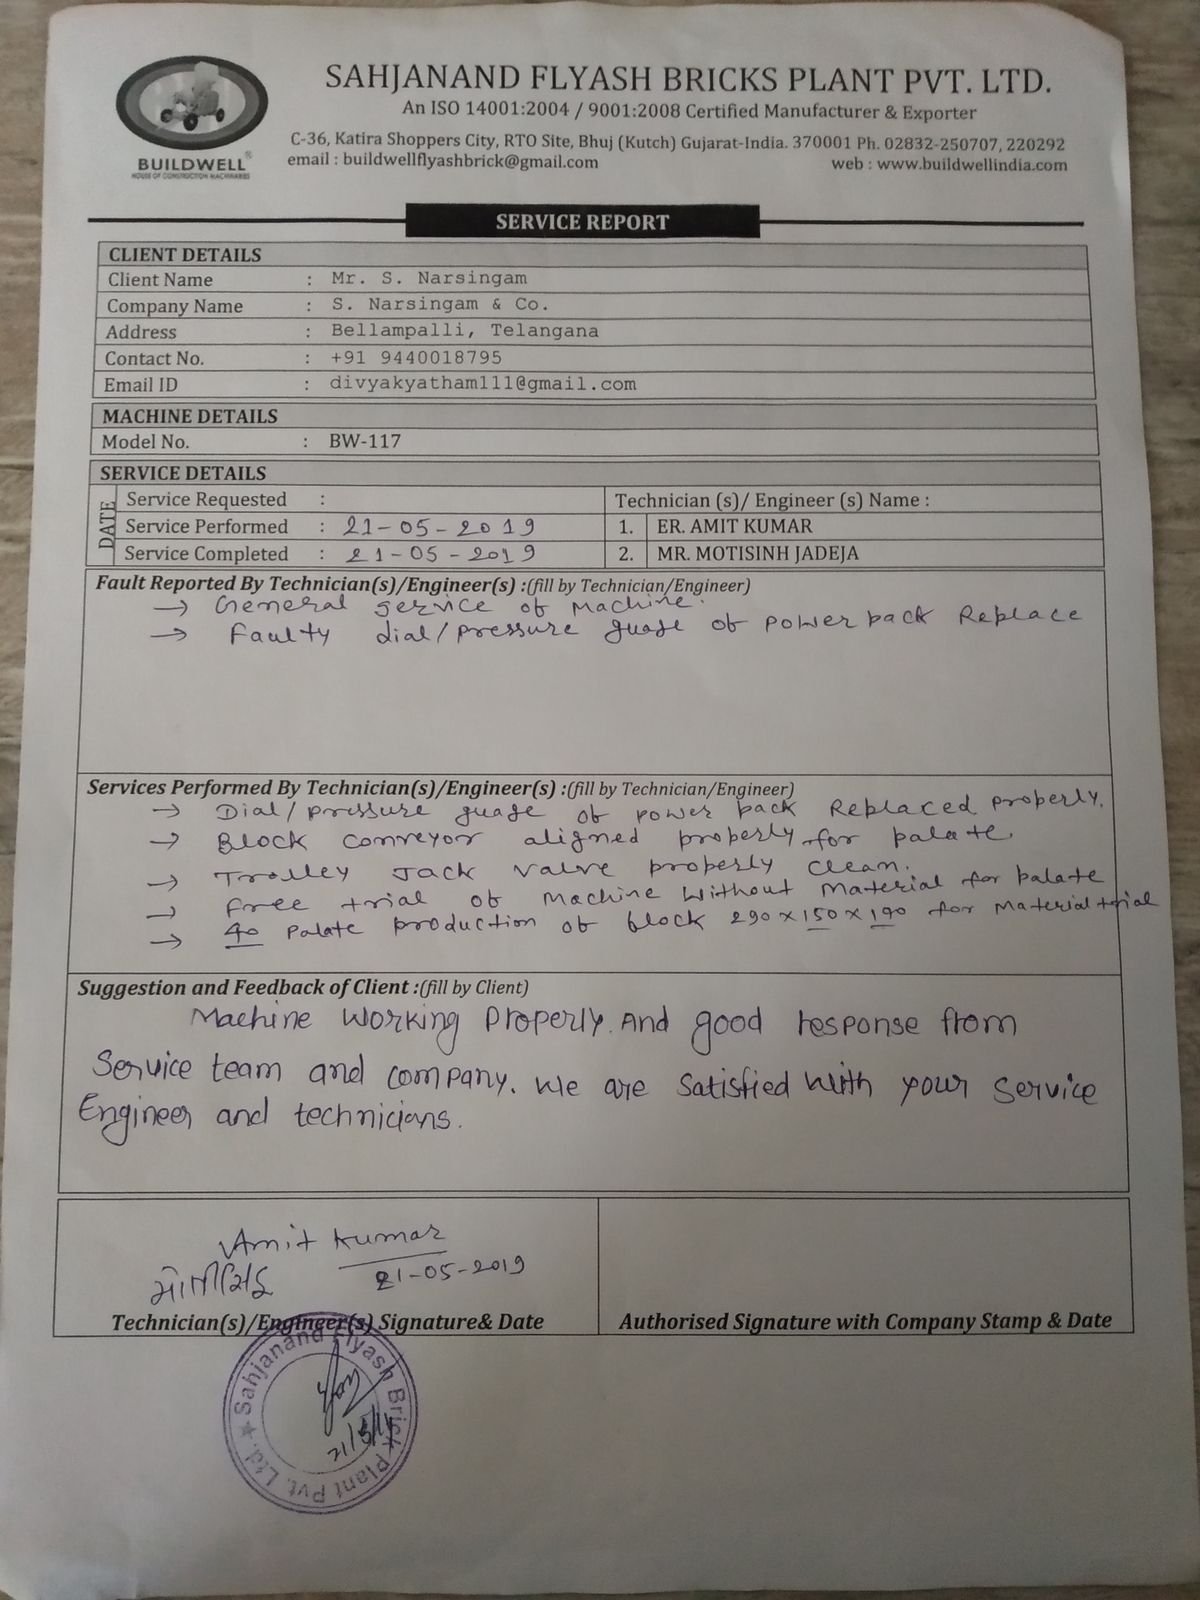 SAHJANAND FLYASH BRICKS PLANT PVT. LTD.
An ISO 14001:2004 / 9001:2008 Certified Manufacturer & Exporter
C-36, Katira Shoppers City, RTO Site, Bhuj (Kutch) Gujarat-India. 370001 Ph. 02832-250707, 220292
email : buildwellflyashbrick@gmail.com web : www.buildwellindia.com
BUILDWELL®
HOUSE OF CONSTRUCTION MACHINARIES
SERVICE REPORT
CLIENT DETAILS
Client Name : Mr. S. Narsingam
Company Name : S. Narsingam & Co.
Address : Bellampalli, Telangana
Contact No. : +91 9440018795
Email ID : divyakyatham111@gmail.com
MACHINE DETAILS
Model No. : BW-117
SERVICE DETAILS
DATE
Service Requested : Technician (s)/ Engineer (s) Name :
Service Performed : 21-05-2019 1. ER. AMIT KUMAR
Service Completed : 21-05-2019 2. MR. MOTISINH JADEJA
Fault Reported By Technician(s)/Engineer(s) :(fill by Technician/Engineer)
→ General service of Machine.
→ Faulty dial/pressure guage of power pack Replace
Services Performed By Technician(s)/Engineer(s) :(fill by Technician/Engineer)
→ Dial/pressure guage of power pack Replaced properly.
→ Block conveyor aligned properly for palate.
→ Trolley Jack valve properly clean.
→ free trial of Machine Without Material for palate
→ 40 palate production of block 290×150×190 for Material trial
Suggestion and Feedback of Client :(fill by Client)
Machine working properly. And good response from
Service team and company. we are satisfied with your service
Engineer and technicians.
Amit Kumar
21-05-2019
Technician(s)/Engineer(s) Signature& Date Authorised Signature with Company Stamp & Date
Sahjanand Flyash Brick Plant Pvt. Ltd. ★